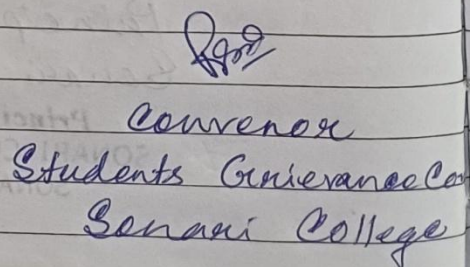 Convenor
Students Grievance
Sonari College